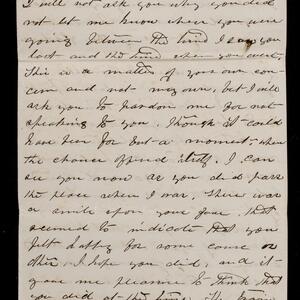 I will not ask you why you did
not let me know where you were
going between the time I saw you
last and the time when you went.
This is a matter of your own con-
cern and not my own, but I will
ask you to pardon me for not
speaking to you, though it could
have been for but a moment, when
the chance offered itself. I can
see you now as you did pass
the place where I was. There was
a smile upon your face, that
seemed to indicate that you
felt happy for some cause or
other. I hope you did, and it
gives me pleasure to think that
you did at the time.